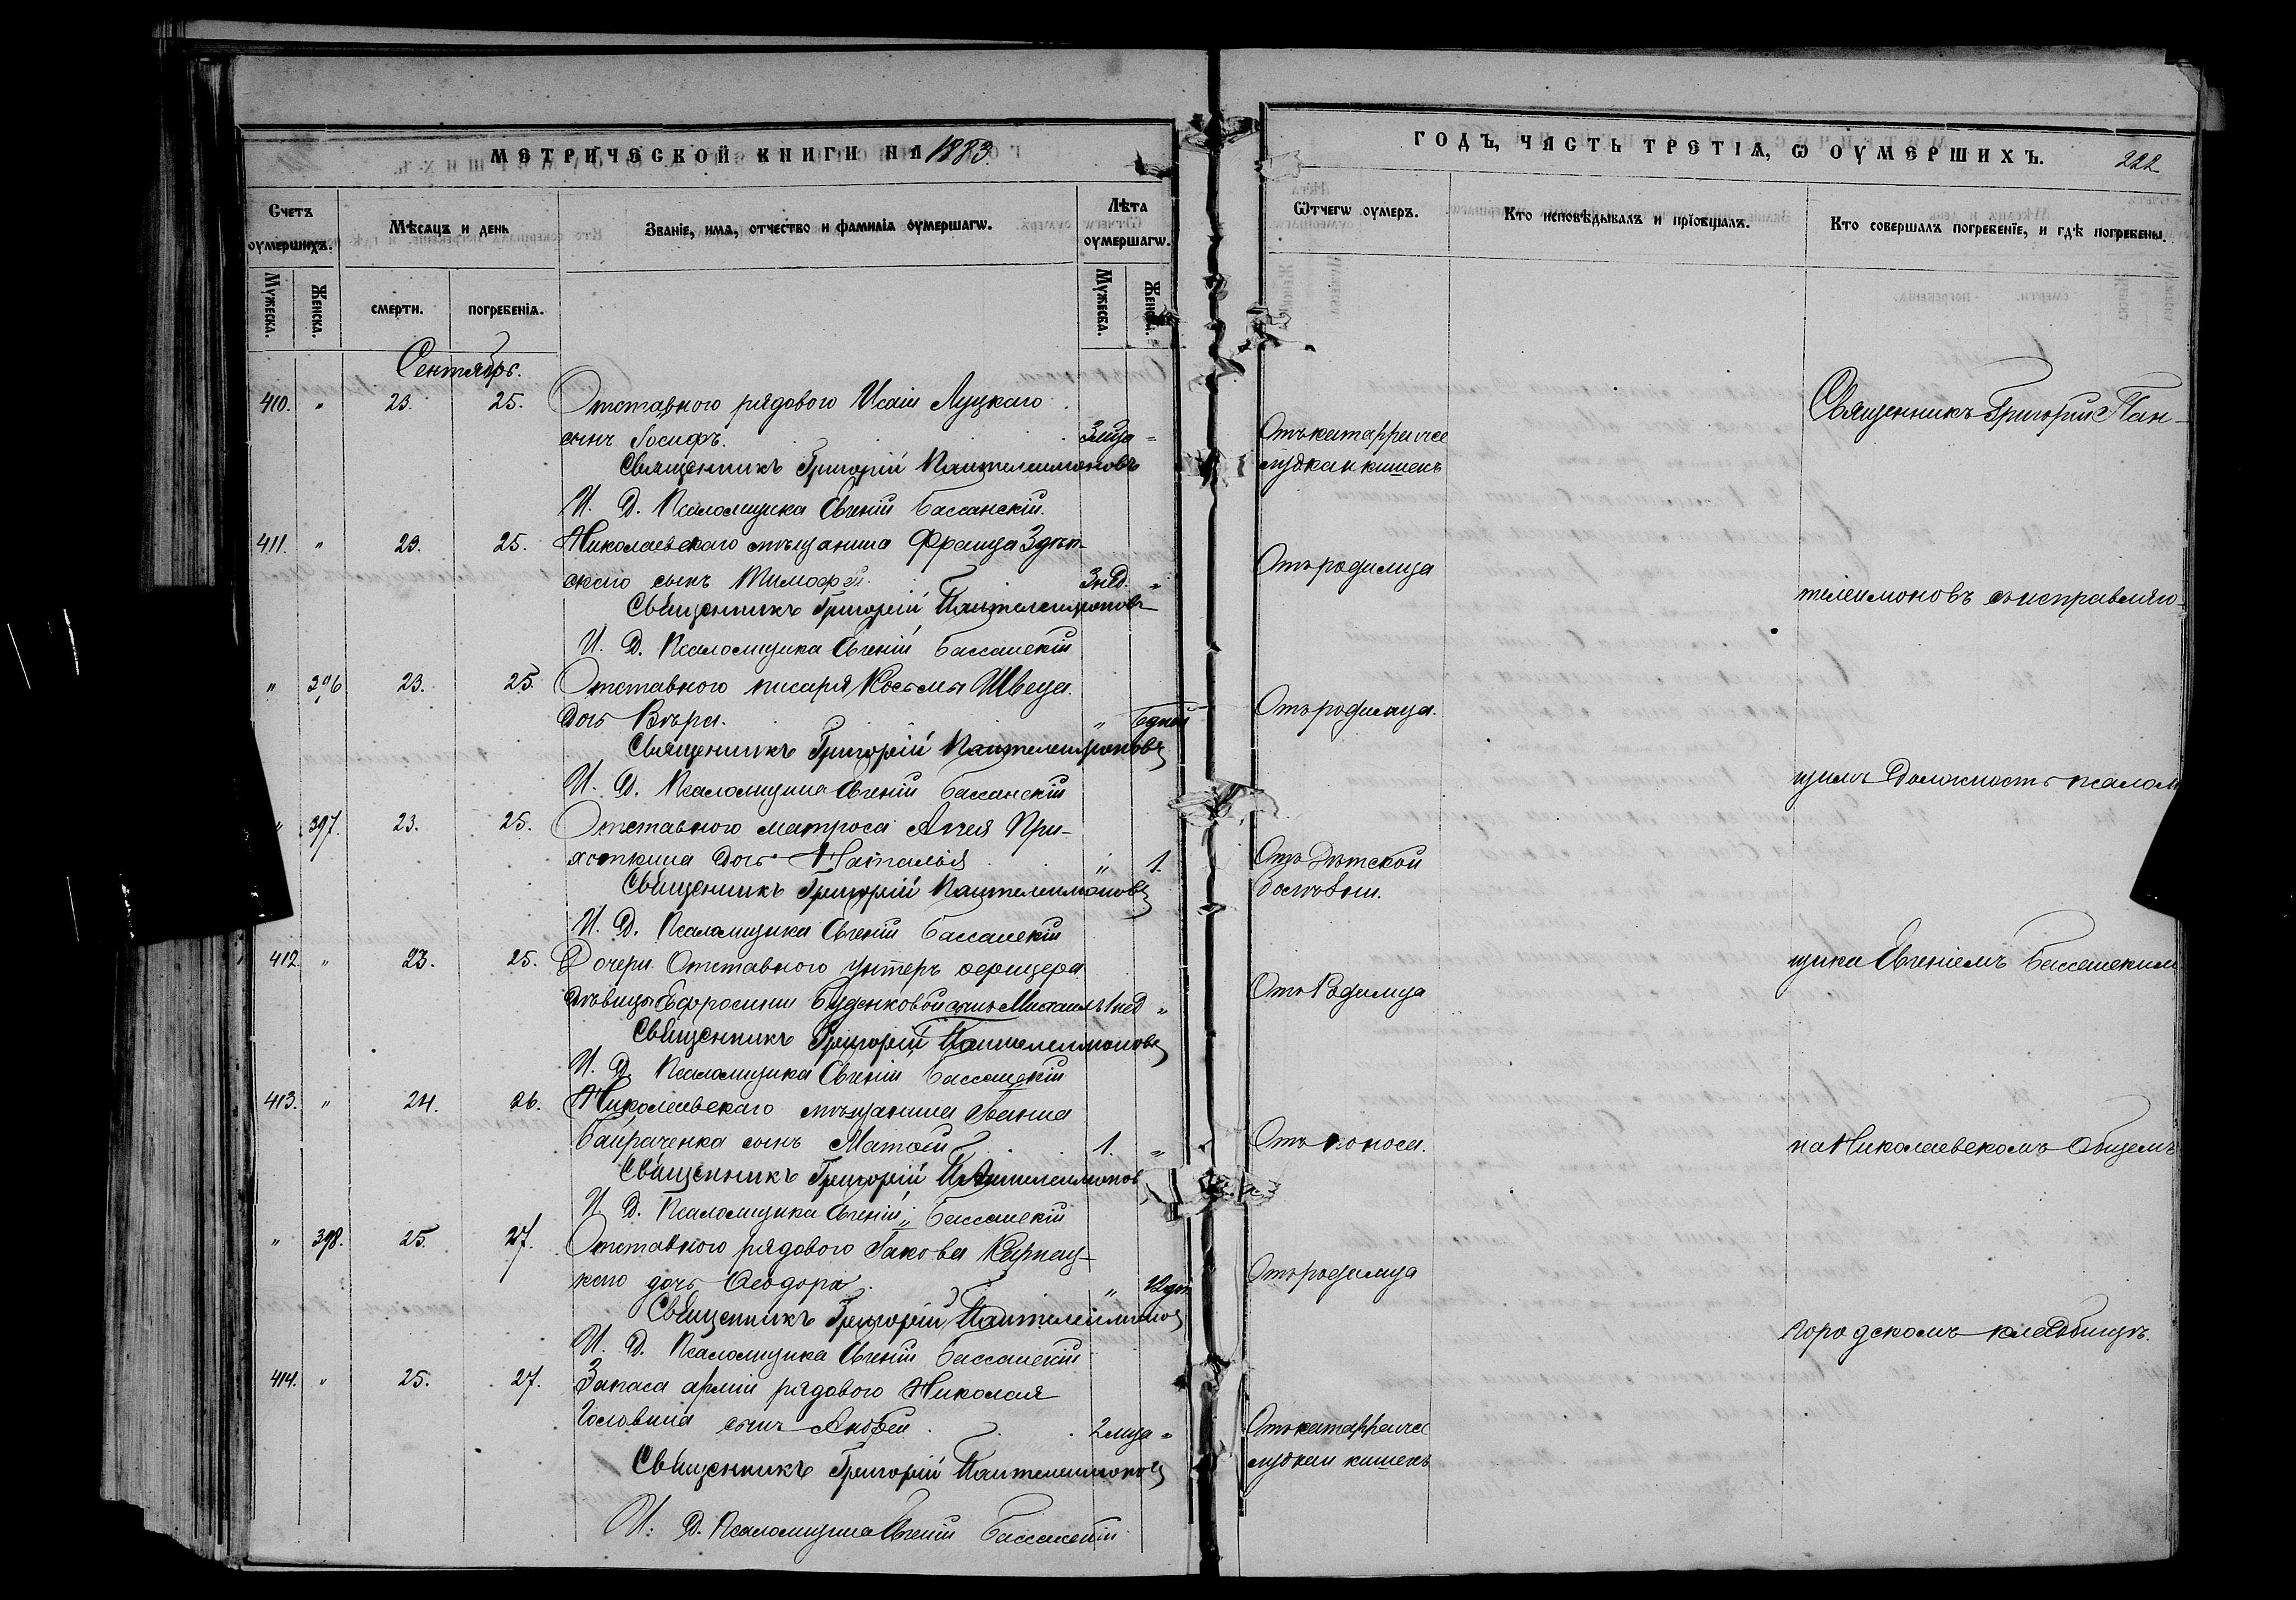 МЕТРИЧЕСКОЙ КНИГИ НА 1883.
Счетъ оумершихъ.
Мѣсяцъ и день
Званіе, имя, отчество и фамилія оумершагѡ.
Лѣта оумершагѡ.
Мужеска.
Женска.
смерти.
погребенія.
Мужеска.
Женска.
Сентябрь.
410. " 23. 25. Отставного рядового Исаіи Луцкаго
сынъ Іосифъ. 3 мѣца "
Священникъ Григорій Пантелеимоновъ
И. Д. Псаломщика Евгеній Бассанскій.
411. " 23. 25. Николаевскаго мѣщанина Франца
скаго сынъ Тимофей. 3 нед. "
Священникъ Григорій Пантелеимоновъ
И. Д. Псаломщика Евгеній Бассанскій
" 396 23. 25. Отставного писаря Косьмы Швеца.
дочь Вѣра. " 6 дней
Священникъ Григорій Пантелеимоновъ
И. Д. Псаломщика Евгеній Бассанскій
" 397. 23. 25. Отставного матроса Аггея При-
хоткина дочь Наталья " 1.
Священникъ Григорій Пантелеимоновъ
И. Д. Псаломщика Евгеній Бассанскій
412. " 23. 25. Дочери Отставного унтеръ офицера
дѣвицы Ефросиніи Буденковой сынъ Михаилъ 1 нед "
Священникъ Григорій Пантелеимоновъ
И. Д. Псаломщика Евгеній Бассанскій
413. " 24. 26. Николаевскаго мѣщанина Іоанна
Байраченка сынъ Матѳей 1. "
Священникъ Григорій Пантелеимонов
И. Д. Псаломщика Евгеній Бассанскій
" 398. 25. 27. Отставного рядового Іакова
каго дочь Ѳеодора " 12 дн
Священникъ Григорій Пантелеимоновъ
И. Д. Псаломщика Евгеній Бассанскій
414. " 25. 27. Запаса арміи рядового Николая
Головина сынъ Андрей 2 мѣца "
Священникъ Григорій Пантелеимоновъ
И. Д. Псаломщика Евгеній Бассанскій
ГОДЪ, ЧАСТЬ ТРЕТІЯ, Ѡ ОУМЕРШИХЪ. 222
Ѿчегѡ оумеръ.
Кто исповѣдывалъ и пріобщалъ.
Кто совершалъ погребеніе, и гдѣ погребены.
Отъ катарра же
лудка и кишекъ
Отъ родимца
Отъ родимца.
Отъ дѣтской
болѣзни.
Отъ Родимца
Отъ поноса.
Отъ родимца
Отъ катарра же
лудка и кишекъ
Священникъ Григорій Пан-
телеимоновъ съ исправляю-
щимъ Должность псалом
щика Евгеніемъ Бассанским
на Николаевскомъ Общемъ
городскомъ кладбищѣ.